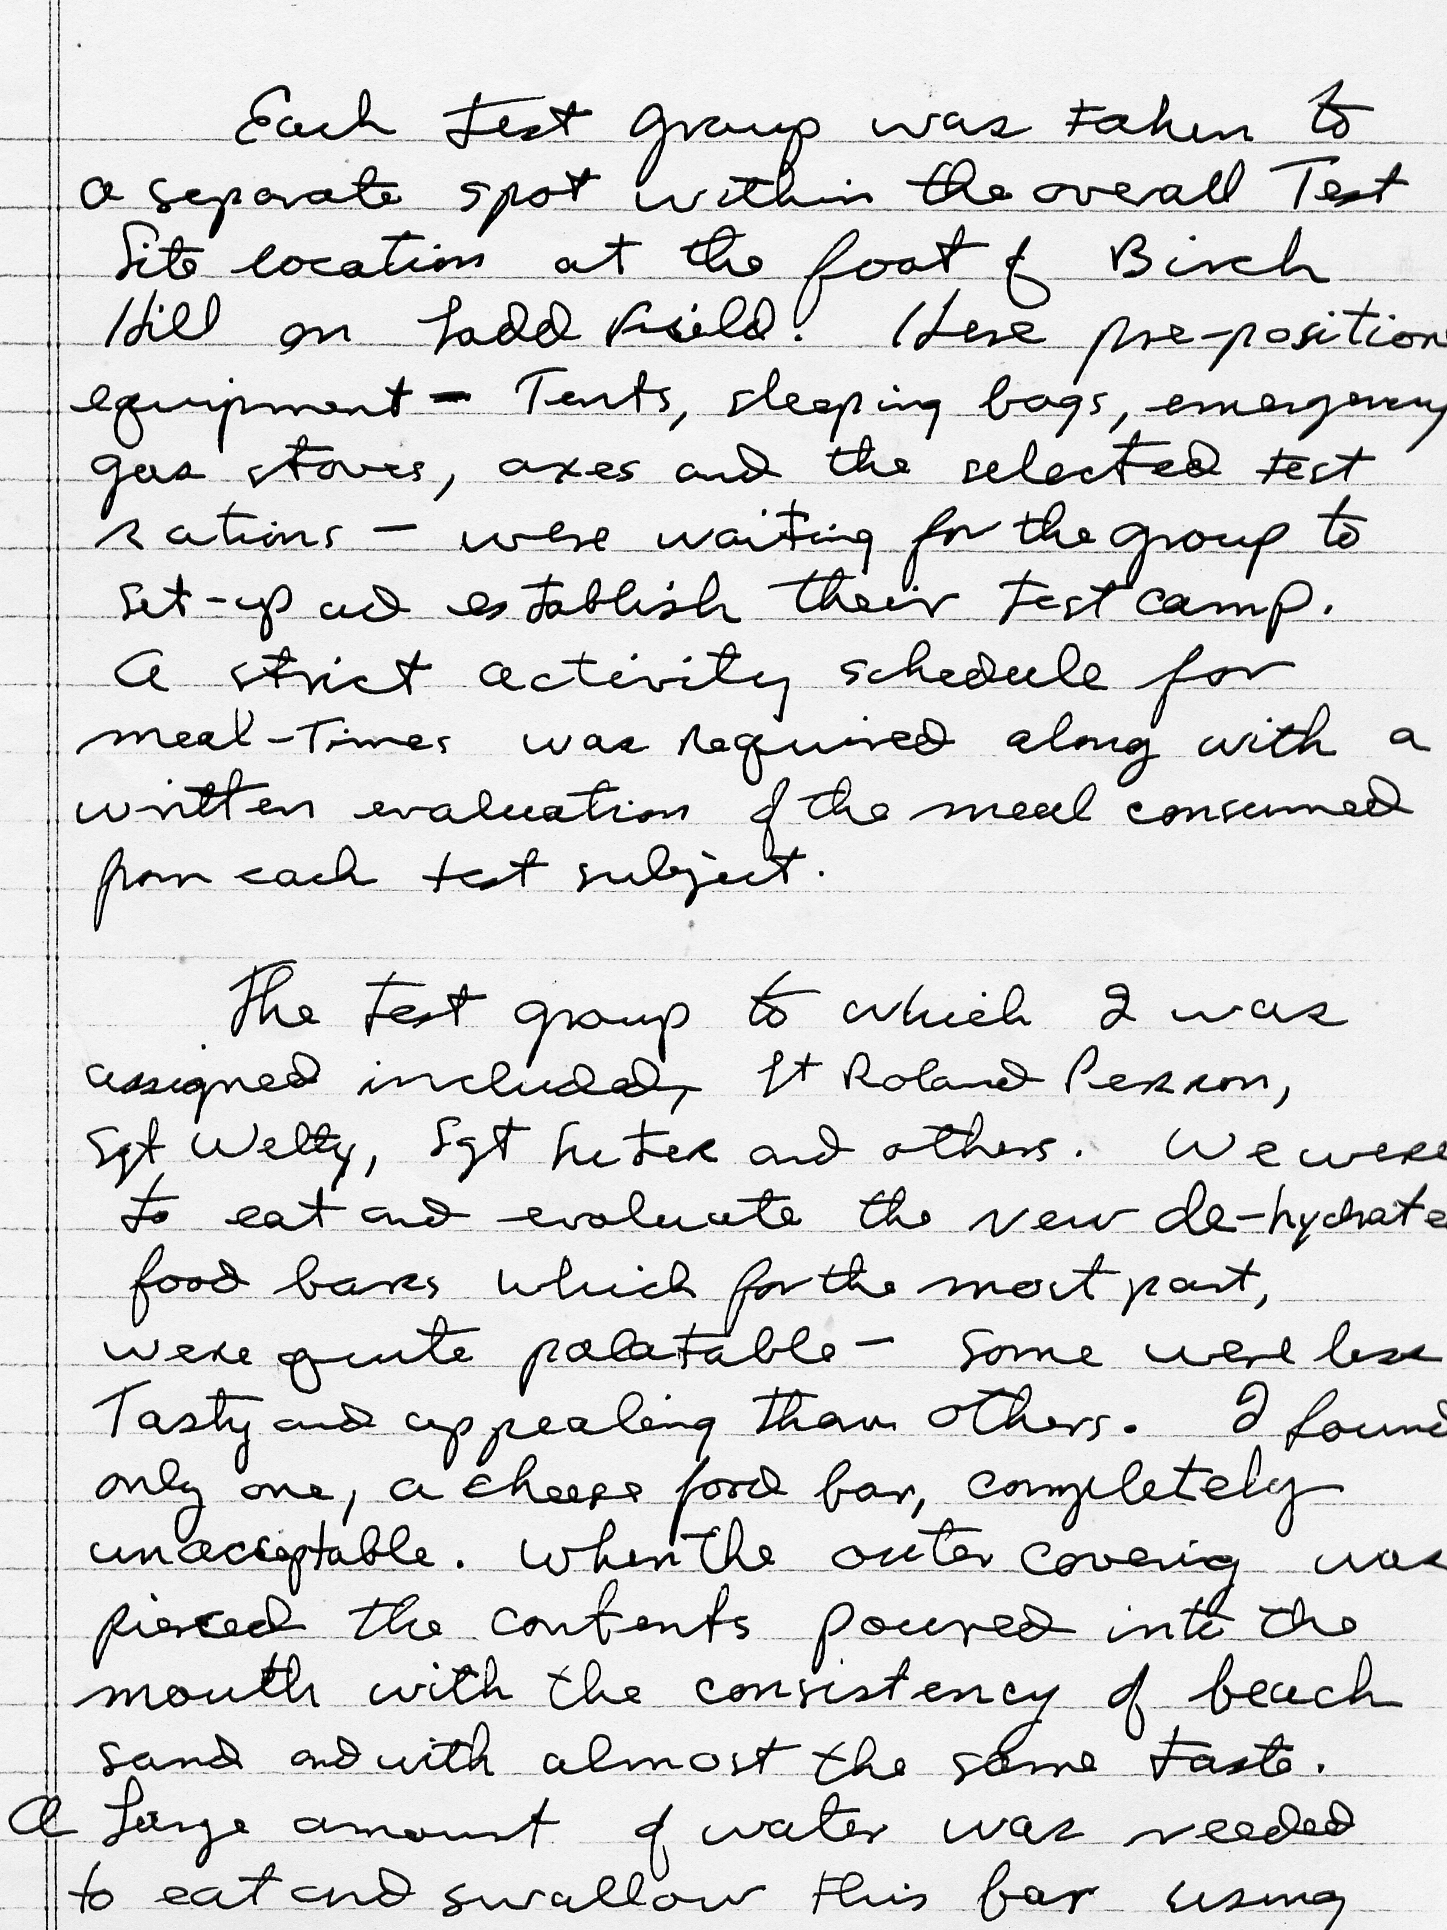 Each test group was taken to
a separate spot within the overall Test
Site location at the foot of Birch
Hill on Ladd Field. Here pre-position
equipment - Tents, sleeping bags, emergency
gas stoves, axes and the selected test
rations - were waiting for the group to
set-up and establish their test camp.
A strict activity schedule for
meal-Times was required along with a
written evaluation of the meal consumed
from each test subject.
The test group to which I was
assigned included, Lt Roland Perron,
Sgt Welty, Sgt and others. We were
to eat and evaluate the new de-hydrate
food bars which for the most part,
were quite palatable - Some were less
Tasty and appealing than others. I found
only one, a cheese food bar, completely
unacceptable. When the outer covering was
pierced the contents poured into the
mouth with the consistency of beach
sand and with almost the same taste.
A large amount of water was needed
to eat and swallow this bar using